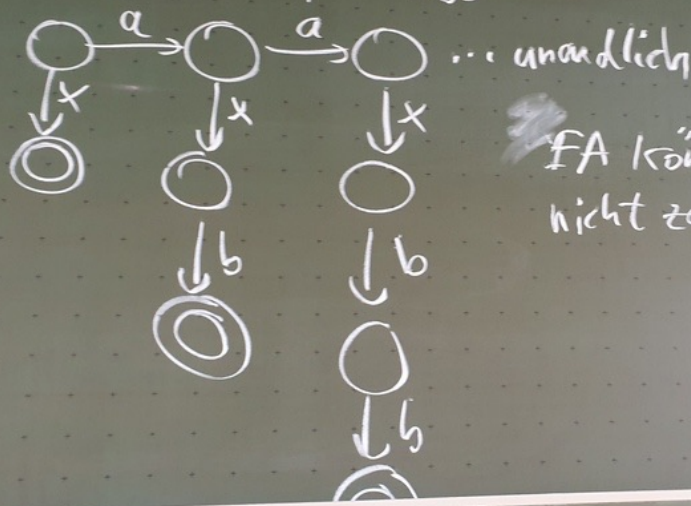 a a
... unendlich
x x x
FA
nicht
b b
b